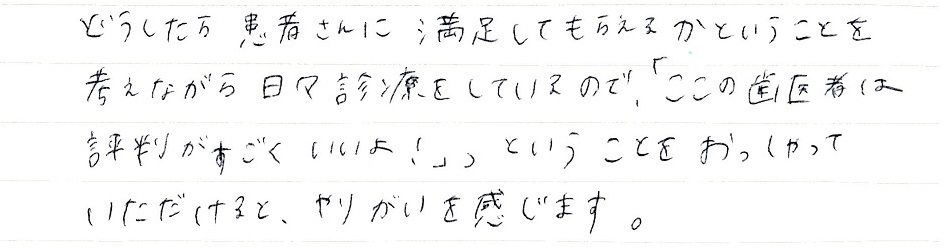 どうしたら患者さんに満足してもらえるかということを
考えながら日々診療をしているので、「ここの歯医者は
評判がすごくいいよ!」、ということをおっしゃって
いただけると、やりがいを感じます。